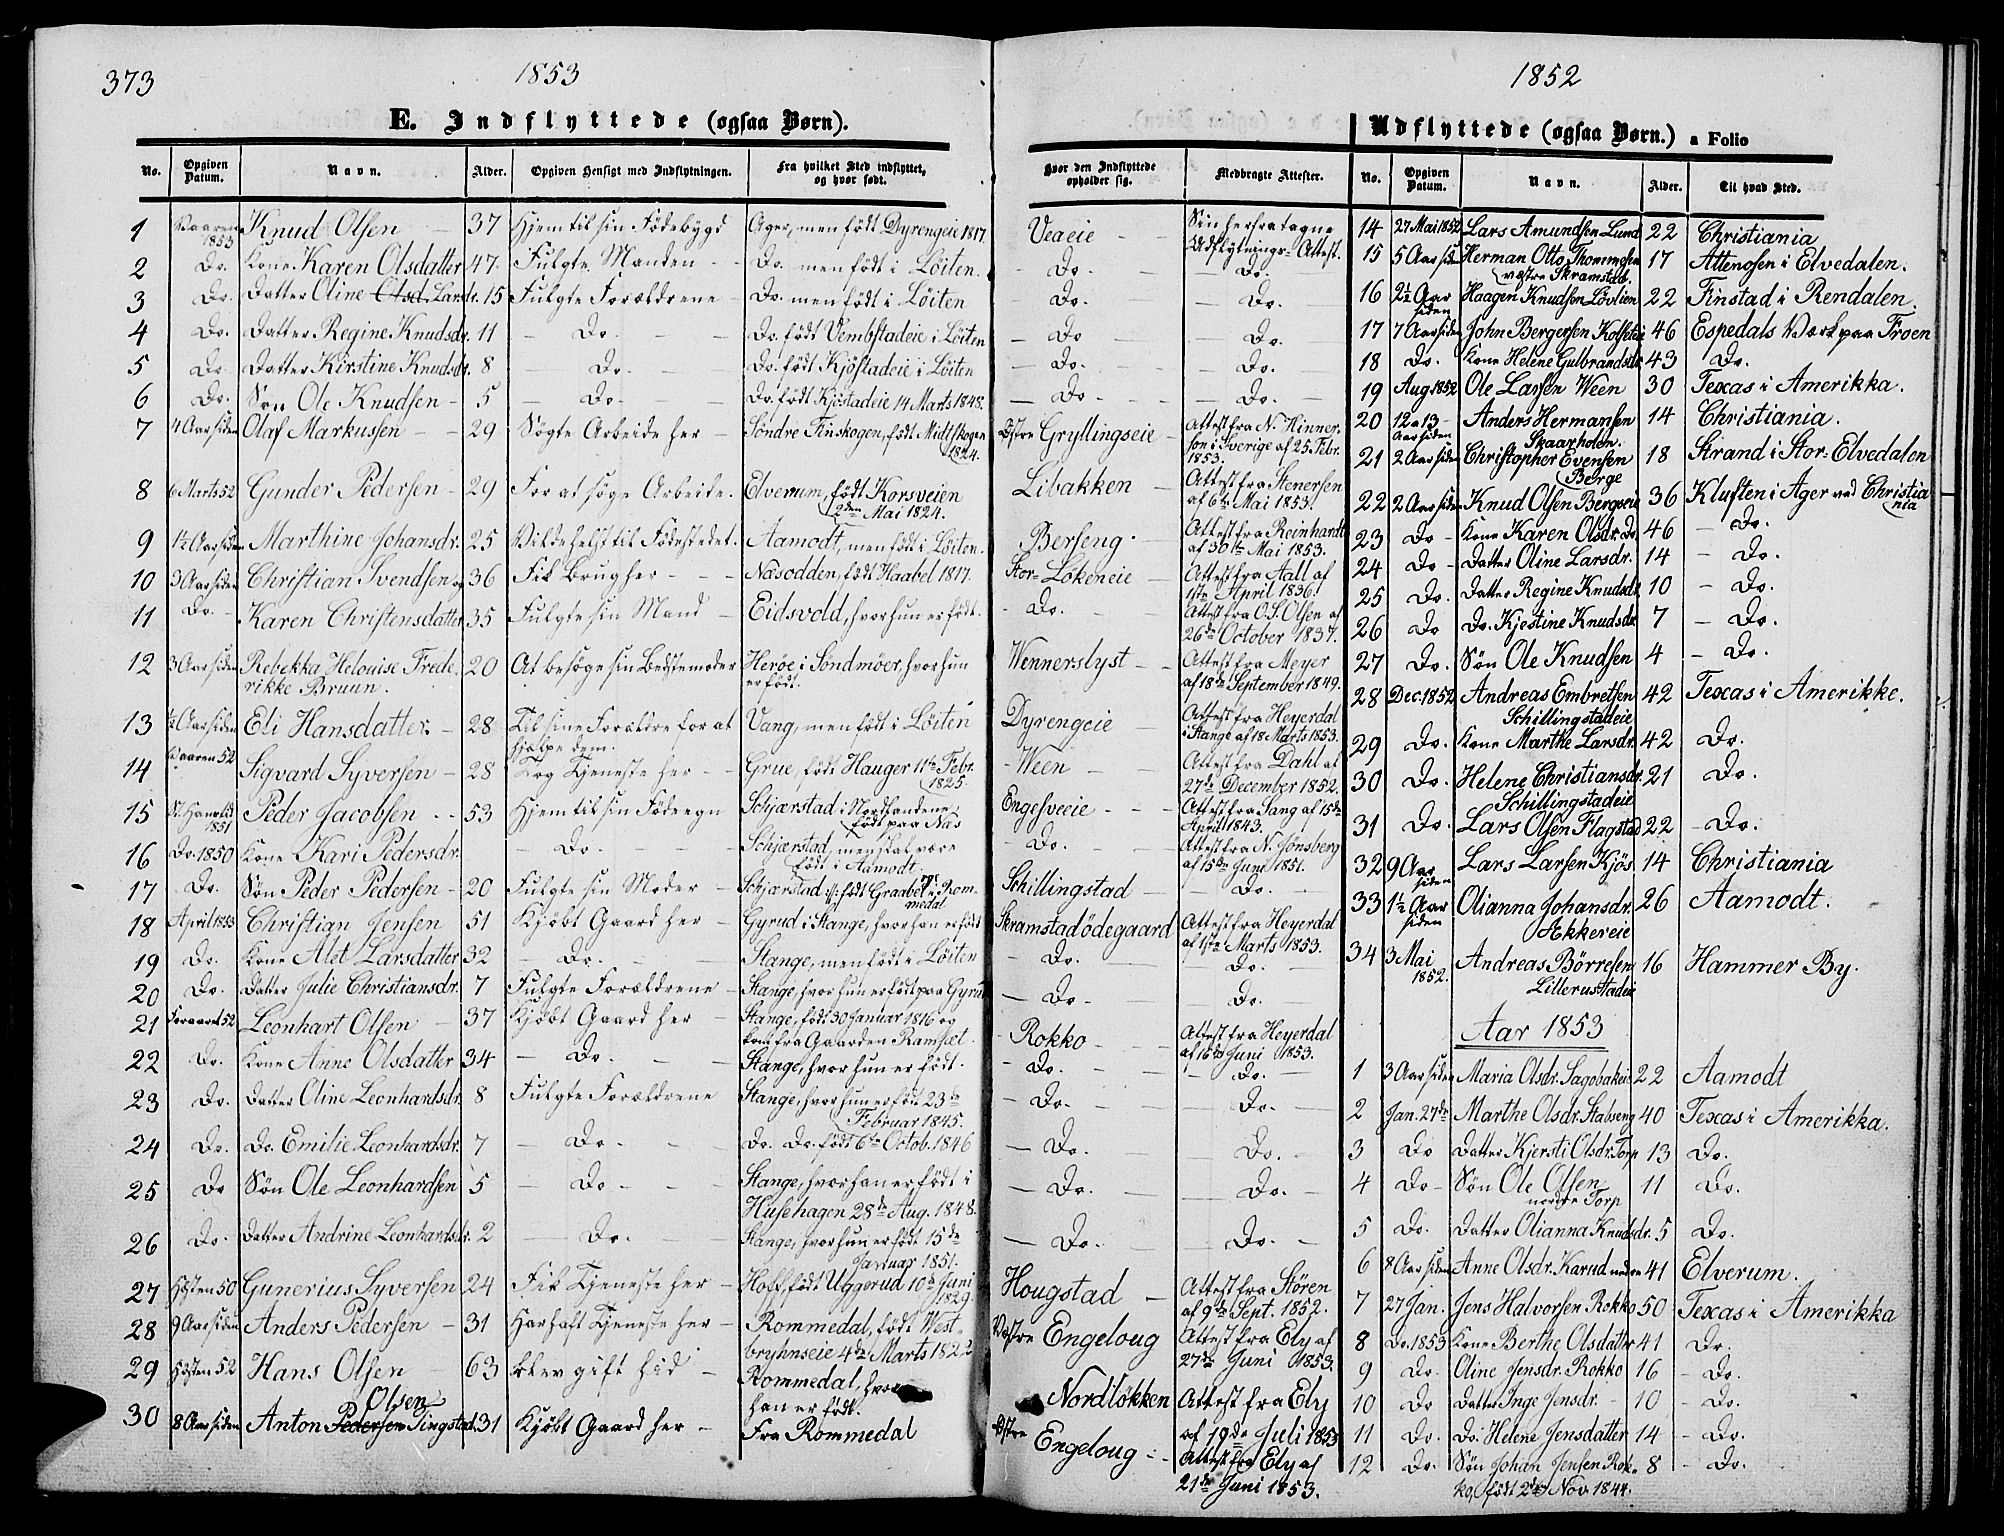 373
1853
E. Indflyttede (ogsaa Børn).
No. Opgiven Datum. Navn. Alder. Opgiven Hensigt med Indflytningen. Fra hvilket Sted indflyttet, og hvor født.
1 Vaaren 1853 Knud Olsen 37 Hjem til sin Fødebygd Ager, men født Dyrengeie 1817.
2 Do. Kone Karen Olsdatter 47 Fulgte Manden Do. men født i Løiten.
3 Do. Datter Oline Olsd. Larsdr. 15 Fulgte Forældrene Do. men født i Løiten
4 Do. Datter Regine Knudsdr. 11 Do. Do. født Vembstadeie i Løiten
5 Do. Datter Kirstine Knudsdr. 8 Do. Do. født Kjøstadeie i Løiten
6 Do. Søn Ole Knudsen 5 Do. Do. født Kjøstadeie 14 Marts 1848.
7 4 Aar siden Olaf Markussen 29 Søgte Arbeide her Søndre Finskogen, født Midtskogen 1824.
8 6 Marts 52 Gunder Pedersen 29 For at søge Arbeide. Elverum, født Korsveien
2den Mai 1824.
9 1½ Aar siden Marthine Johansdr. 25 Vilde helst til Fødestedet. Aamodt, men født i Løiten.
10 3 Aar siden Christian Svendsen og 36 Fik Brug her Næsodden, født Haabel 1817.
11 Do. Karen Christensdatter 35 Fulgte sin Mand Eidsvold, hvor hun er født.
12 3 Aar siden Rebekka Helouise Frede- 20 At besøge sin Bedstemoder Herøe i Søndmøer, hvor hun
rikke Bruun. er født.
13 ½ Aar siden Eli Hansdatter 28 Til sine Forældre for at Vang, men født i Løiten
hjælpe dem.
14 Vaaren 52 Sigvard Syversen 28 Tog Tjeneste her Grue, født Hauger 11te Febr.
1825.
15 St. Hans 1851 Peder Jacobsen 53 Hjem til sin Fødeegn Schjærstad i Nordlandene,
født paa Næs
16 Do. 1850 Kone Kari Pedersdr. Do. Schjærstad, men skal være
født i Aamodt.
17 Do. Søn Peder Pedersen 20 Fulgte sin Moder Schjærstad, født Graabøl i Rom-
medal
18 April 1853 Christian Jensen 51 Kjøbt Gaard her Gyrud i Stange, hvor han er født
19 Do. Kone Alet Larsdatter 32 Do. Stange, men født i Løiten
20 Do. Datter Julie Christiansdr. 7 Fulgte Forældrene Stange, hvor hun er født paa Gyrud
21 Foraaret 52 Leonhart Olsen 37 Kjøbt Gaard her Stange, født 30 Januar 1816 og
kom fra Gaarden Ramset.
22 Do. Kone Anne Olsdatter 34 Do. Stange, hvor hun er født.
23 Do. Datter Oline Leonhardsdr. 8 Fulgte Forældrene Stange, hvor hun er født 23de
Februar 1845.
24 Do. Do. Emilie Leonhardsdr. 7 Do. Do. Do. født 6te Octob. 1846
25 Do Søn Ole Leonhardsen 5 Do. Stange, hvor han er født i
Husehagen 28de Aug. 1848.
26 Do. Datter Andrine Leonhardsdr. 2 Do. Stange, hvor hun er født 15de
Januar 1851.
27 Høsten 50 Gunerius Syversen 24 Fik Tjeneste her Hoff, født Uggerud 10de Juni
1829
28 9 Aar siden Anders Pedersen 31 Har haft Tjeneste her Rommedal, født West-
bryhnseie 4de Marts 1822
29 Høsten 52 Hans Olsen 63 Blev gift hid Rommedal, hvor
han er født.
30 8 Aar siden Anton Pedersen Olsen Tingstad 31 Kjøbt Gaard her Fra Rommedal
1852
Udflyttede (ogsaa Børn.) a Folio
Hvor den Indflyttede opholder sig. Medbragte Attester. No. Opgiven Datum. Navn. Alder. Til hvad Sted.
Veaeie Sin herfra tagne Udflytnings-Attest.
Do. Do.
Do. Do.
Do Do.
Do. Do.
Do. Do.
Østre Gryllingseie Attest fra N. Hinner-
son i Sverige af 25 Febr.
1853.
Libakken Attest fra Stenersen
af 6te Mai 1853.
Berseng Attest fra Reinhardt
af 30te Mai 1853.
Stor-Løkeneie Attest fra Aall af
1ste April 1836.
Do. Attest fra O.S. Olsen af
26de October 1837.
Wennerslyst Attest fra Meyer
af 18de September 1849.
Dyrengeie Attest fra Heyerdal
i Stange af 18 Marts 1853.
Ween Attest fra Dahl af
27de December 1852.
Engesveeie Attest fra Sang af 15de
April 1843.
Do. Attest fra N. Jønsberg
af 15de Juni 1851.
Schillingstad Do.
Skramstadødegaard Attest fra Heyerdal
af 1ste Marts 1853.
Do. Do.
Do Do.
Rokko Attest fra Heyerdal
af 16de Juni 1853.
Do. Do.
Do. Do.
Do. Do.
Do. Do.
Do. Do.
Hougstad Attest fra Støren
af 9de Sept. 1852.
Vestre Engeloug Attest fra Ely af
27de Juni 1853.
Nordløkken Attest fra Ely
af 19de Juli 1853
Østre Engeloug Attest fra Ely af
21de Juni 1853.
14 27 Mai 1852 Lars Amundsen Lund 22 Christiania
15 5 Aar siden Herman Otto Thommesen 17 Attenosen i Elvedalen.
vestre Skramstad.
16 2½ Aar siden Haagen Knudsen Løvlien 22 Finstad i Rendalen.
17 7 Aar siden John Bergersen Kolseteie 46 Espedals Værk paa Froen
18 Do. Kone Helene Gulbrandsdr. 43 Do.
19 Aug 1852 Ole Larsen Ween 30 Texas i Amerikka.
20 12 a 13 Aar siden Anders Hermansen 14 Christiania.
Skaarholen.
21 2 Aar siden Christopher Evensen 18 Strand i Stor-Elvedalen
Berge
22 2 Aar siden Knud Olsen Bergseie 36 Kluften i Ager ved Christia
nia
23 Do Kone Karen Olsdr. Do 46 Do.
24 Do Datter Oline Larsdr. 14 Do.
25 Do. Datter Regine Knudsdr. 10 Do.
26 Do Do. Kjestine Knudsdr. 7 Do.
27 Do. Søn Ole Knudsen 4 Do.
28 Dec. 1852 Andreas Embretsen 42 Texas i Amerikke.
Schillingstadeie
29 Do. Kone Marthe Larsdr. 42 Do.
30 Do. Helene Christiansdr. 21 Do.
Schillingstadeie
31 Do. Lars Olsen Flagstad 22 Do.
32 9 Aar siden Lars Larsen Kjøs 14 Christiania
33 1½ Aar siden Olianna Johansdr. 26 Aamodt.
Akkereie
34 3 Mai 1852. Andreas Børresen 16 Hammer By.
Lillerustadeie
Aar 1853
1 3 Aar siden Maria Olsdr. Sagbakeie 22 Aamodt
2 Jan. 27de Marthe Olsdr. Stabseng 40 Texas i Amerikka.
3 Do Datter Kjersti Olsdr. Torp 13 Do.
4 Do Søn Ole Olsen 11 Do.
nordre Torp
5 Do. Datter Olianna Knudsdr. 5 Do.
6 8 Aar siden Anne Olsdr. Karud nedre 41 Elverum.
7 27 Jan. Jens Halvorsen Rokko 50 Texas i Amerikka
8 Do. 1853 Kone Berthe Olsdatter 41 Do.
9 Do. Oline Jensdr. Rokko 16 Do.
10 Do Datter Inge Jensdr. 10 Do.
11 Do. Do. Helene Jensdatter 14 Do.
12 Do. Søn Johan Jensen Rok- 8 Do.
ko, født 2de Nov. 1844.